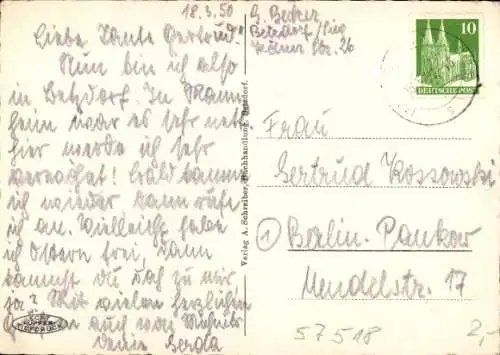 18.3.50
Liebe Tante Gertrud!
Nun bin ich also
in Betzdorf. In Mann
heim war es sehr nett
hier werde ich sehr
bald
ich wieder dann rufe
ich an. Vielleicht habe
ich Ostern frei, dann
kannst Du doch zu mir
Mit vielen herzlichen
auch von
Deine Gerda
ECHT
KUPFER
TIEFDRUCK
Verlag A. Schreiber, Buchhandlung, Betzdorf.
G. Becker
Betzdorf/Sieg
Str. 26
10
DEUTSCHE POST
Frau
Gertrud Kossowski
1 Berlin-Pankow
Mendelstr. 17
57518
2,-